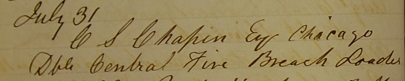 July 31
C S Chapin Esq Chicago
Dble Central Fire Breach Loader